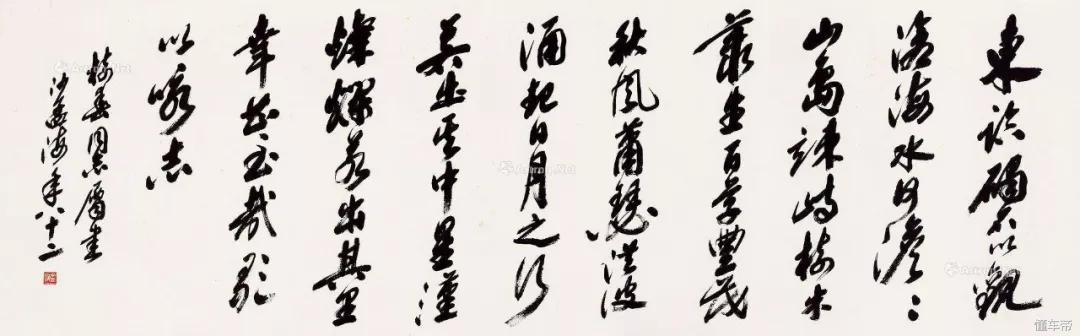 東臨碣石以觀
滄海水何澹〻
山島竦峙樹木
叢生百草豐茂
秋風蕭瑟洪波
涌起日月之行
若出其中星漢
燦爛若出其里
幸甚至哉歌
以咏志
同志屬書
沙孟海年八十二
Artron.Net
Artron.Net
Artron.Net
懂车帝